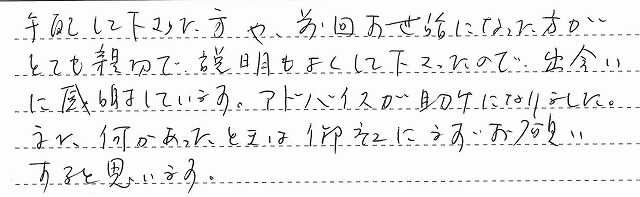 手配して下さった方や、前回お世話になった方が
とても親切で説明もよくして下さったので出会い
に感謝しています。アドバイスが助けになりました。
また、何かあったときは御社にまずお願い
すると思います。